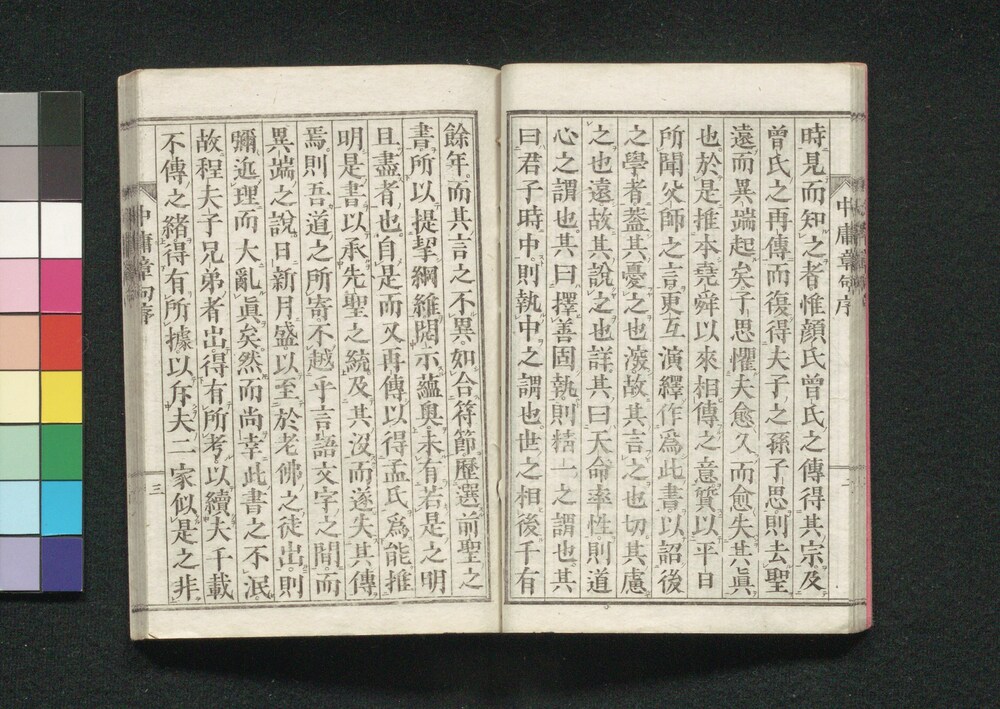 時見而知之者惟顏氏曾氏之傳得其宗及
曾氏之再傳而復得夫子之孫子思則去聖
遠而異端起矣子思懼夫愈久而愈失其眞
也於是推本堯舜以來相傳之意質以平日
所聞父師之言更互演繹作爲此書以詔後
之學者蓋其憂之也深故其言之也切其慮
之也遠故其說之也詳其曰天命率性則道
心之謂也其曰擇善固執則精一之謂也其
曰君子時中則執中之謂也世之相後千有
中庸章句序
二
餘年而其言之不異如合符節歷選前聖之
書所以提挈綱維開示蘊奧未有若是之明
且盡者也自是而又再傳以得孟氏爲能推
明是書以承先聖之統及其沒而遂失其傳
焉則吾道之所寄不越乎言語文字之間而
異端之說日新月盛以至於老佛之徒出則
彌近理而大亂眞矣然而尚幸此書之不泯
故程夫子兄弟者出得有所考以續夫千載
不傳之緒得有所據以斥夫二家似是之非
中庸章句序
三